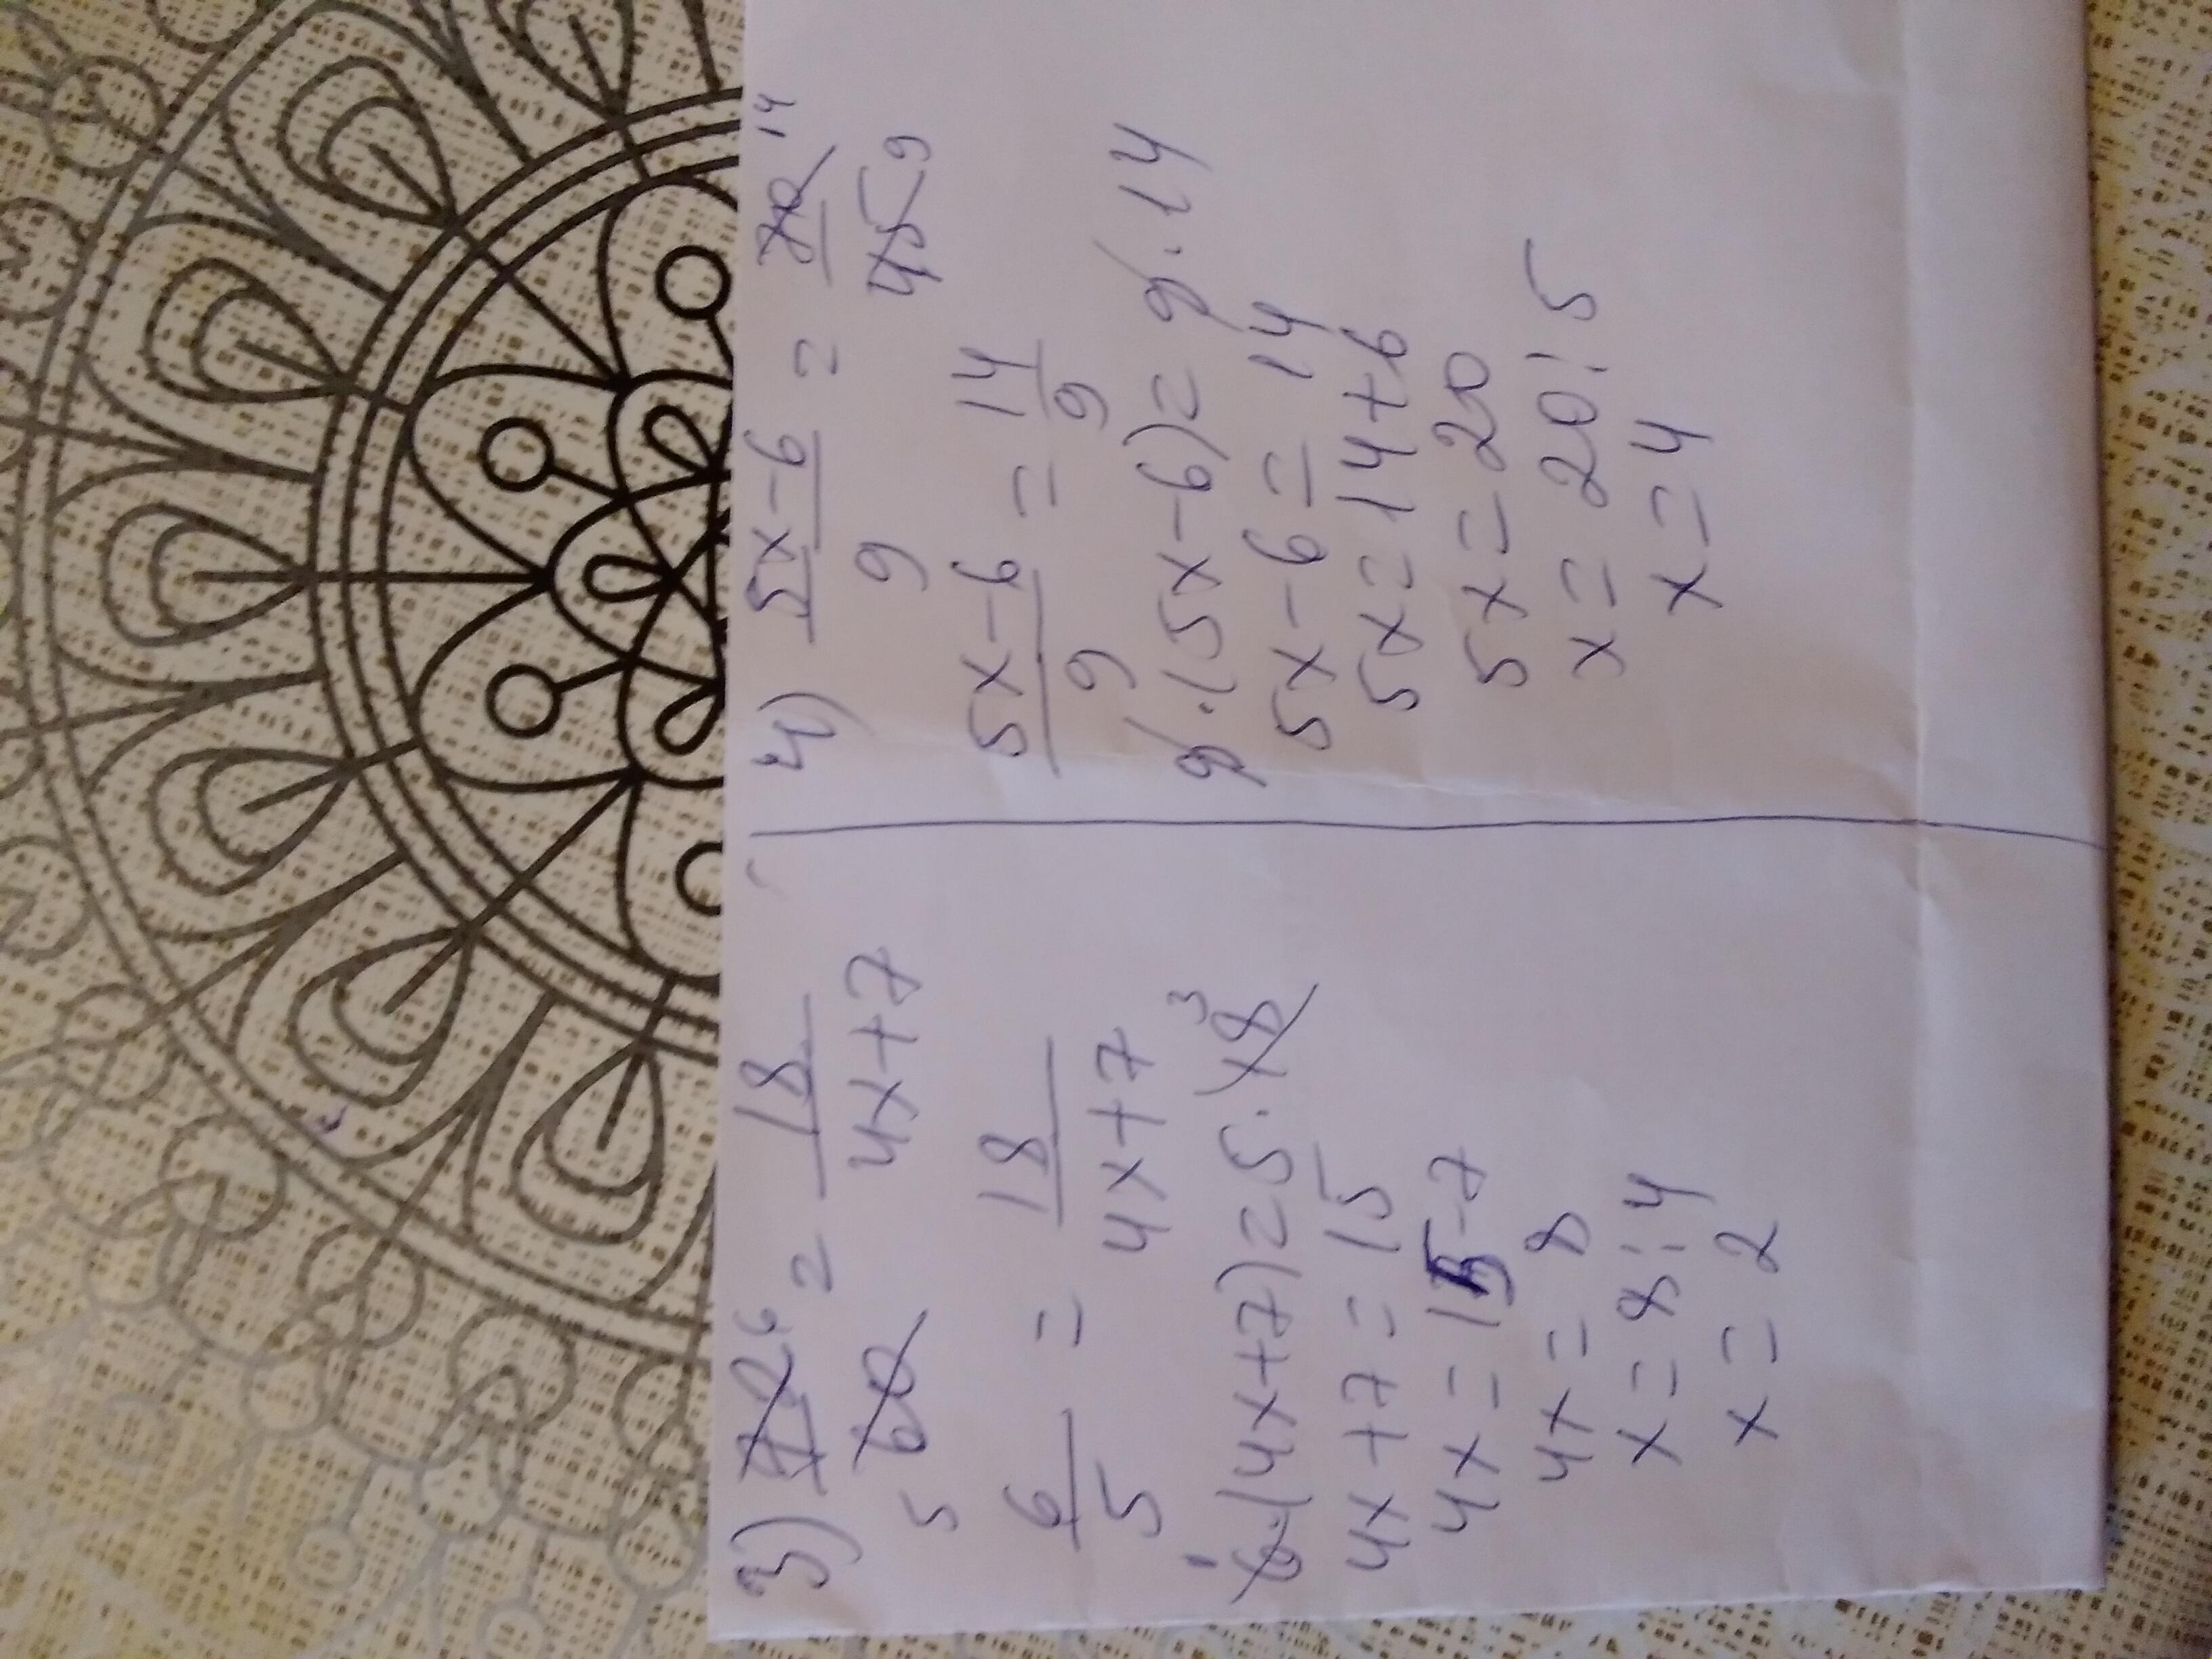 3) 72/60 = 18/(4x+7)
6
5
6/5 = 18/(4x+7)
1 3
6·(4x+7)=5·18
4x+7=15
4x=15-7
4x=8
x=8:4
x=2
4) (5x-6)/9 = 70/45
14
9
(5x-6)/9 = 14/9
9·(5x-6)=9·14
5x-6=14
5x=14+6
5x=20
x=20:5
x=4